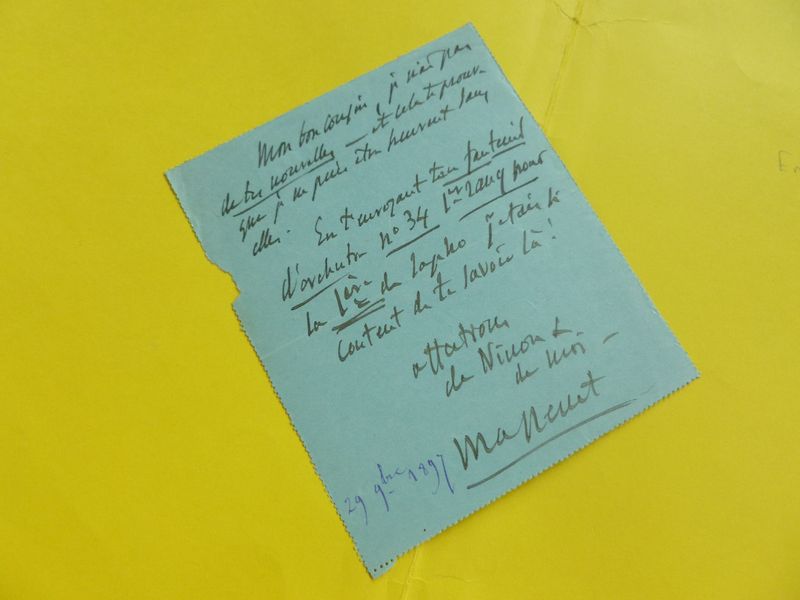 Mon bon cousin, je n'ai pas
de tes nouvelles — et cela te prouve
que je ne puis être heureux sans
elles. En t'envoyant ton fauteuil
d'orchestre n° 34 1er rang pour
la 1ère de Sapho j'étais si
content de te savoir là!
de Ninon &
de moi —
Massenet
29 9bre 1897